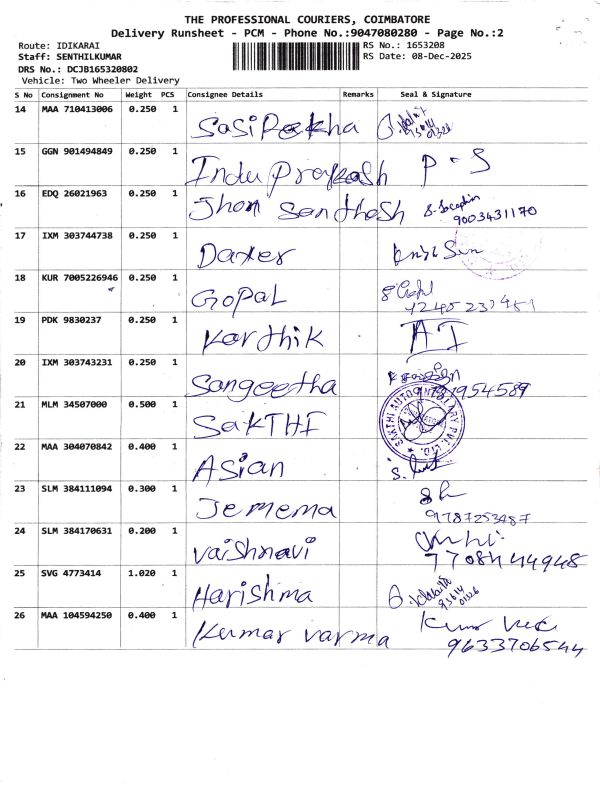 THE PROFESSIONAL COURIERS, COIMBATORE
Delivery Runsheet - PCM - Phone No.:9047080280 - Page No.:2
Route: IDIKARAI
RS No.: 1653208
Staff: SENTHILKUMAR
RS Date: 08-Dec-2025
DRS No.: DCJB165320802
Vehicle: Two Wheeler Delivery
S No Consignment No Weight PCS Consignee Details Remarks Seal & Signature
14 MAA 710413006 0.250 1 SasiRekha
15 GGN 901494849 0.250 1 Indu Prakash P - S
16 EDQ 26021963 0.250 1 Jhon Santhosh
9003431170
17 IXM 303744738 0.250 1 Daxer
18 KUR 7005226946 0.250 1 GOPAL
19 PDK 9830237 0.250 1 Karthik
20 IXM 303743231 0.250 1 Sangeetha
21 MLM 34507000 0.500 1 SAKTHI
22 MAA 304070842 0.400 1 Asian
23 SLM 384111094 0.300 1 Jemema
9787253487
24 SLM 384170631 0.200 1 vaishnavi
25 SVG 4773414 1.020 1 Harishma
26 MAA 104594250 0.400 1 Kumar varma
9633706544